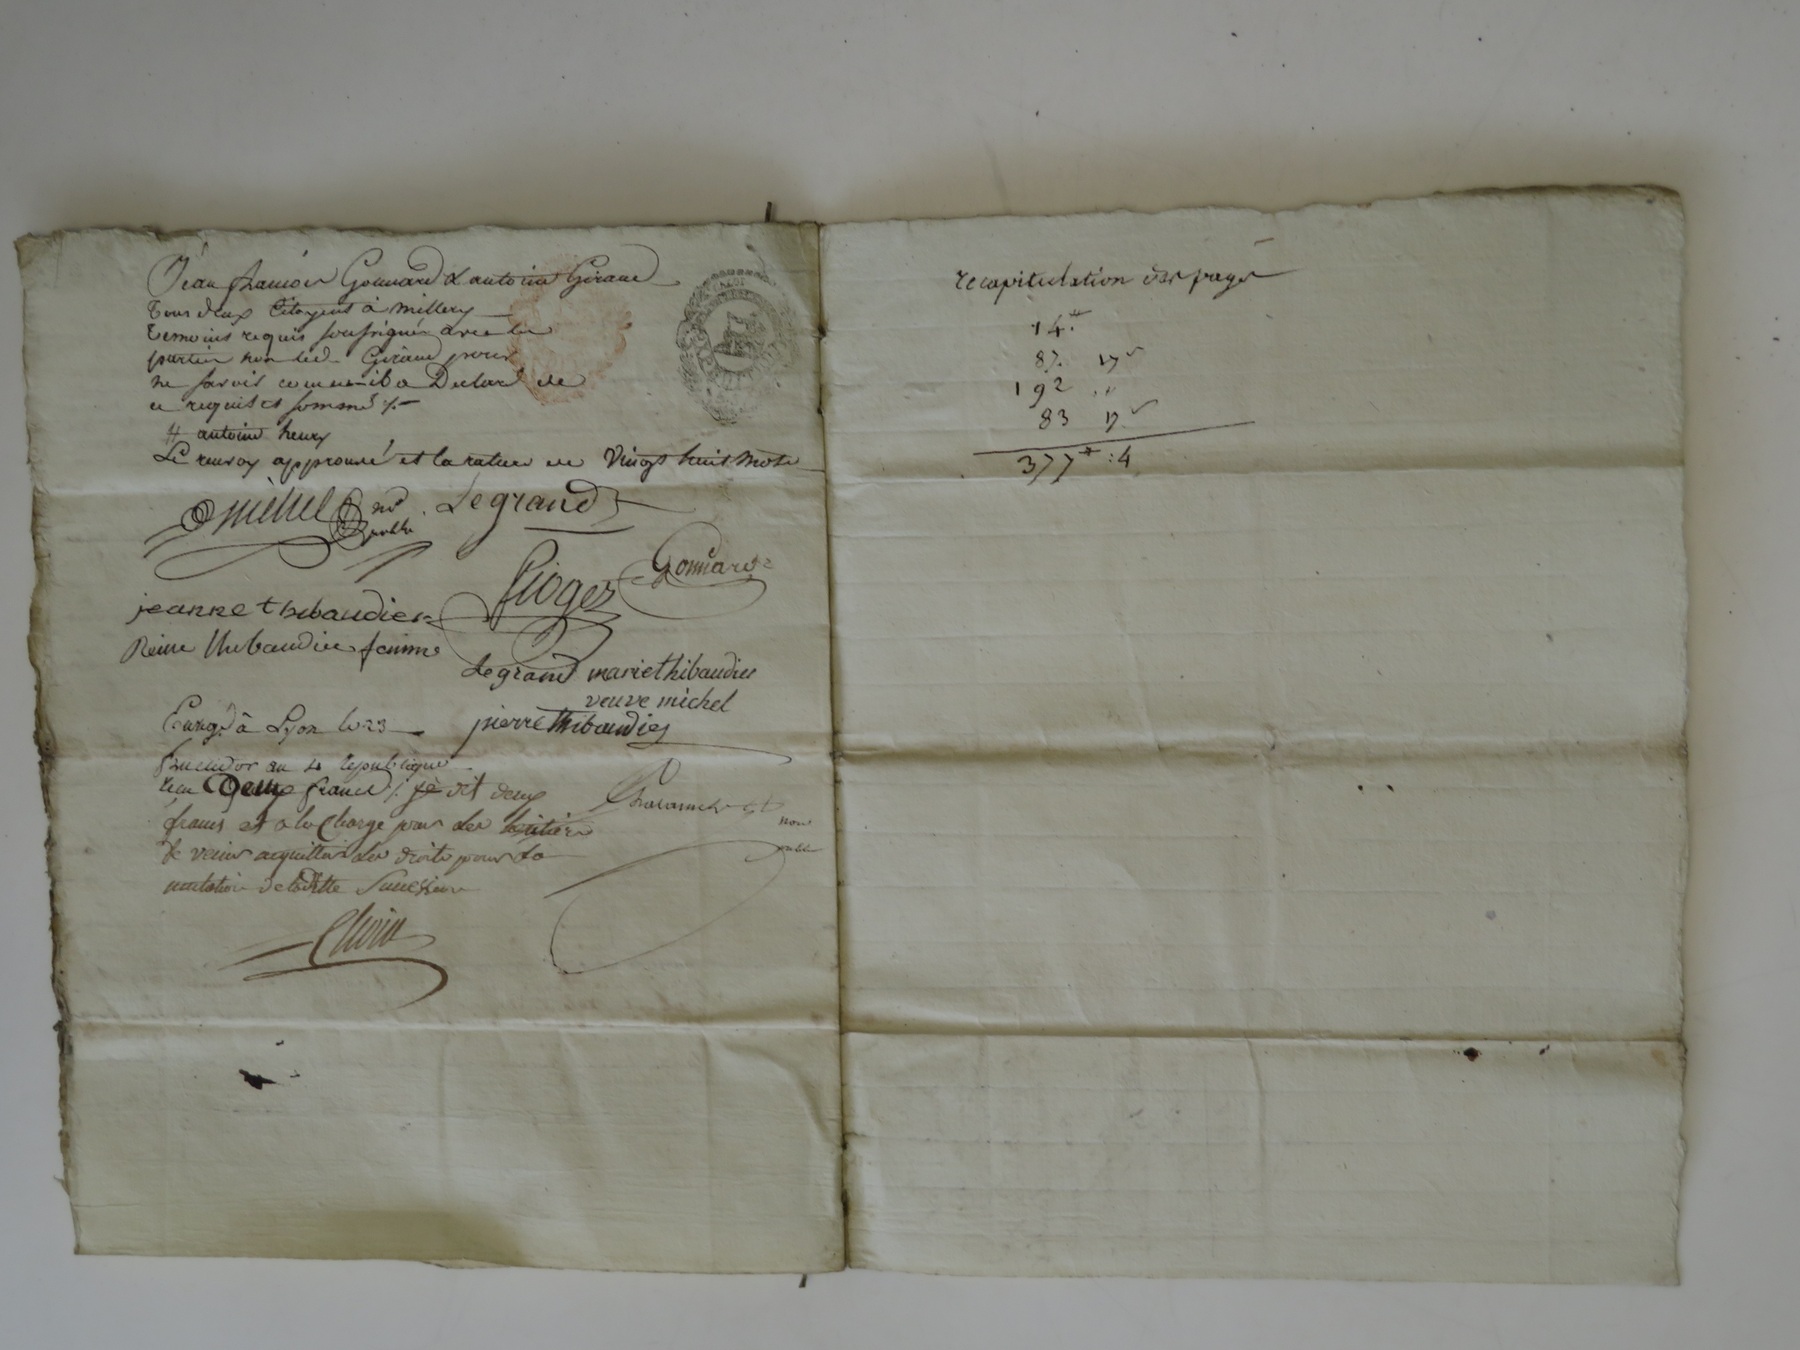 Jean Gonnard & antoine Giraud
tous deux Citoyens à Millery
temoins requis soussignés avec les
parties non led. Giraud pour
ne savoir comme il a Declaré de
ce requis et sommé ./.
# antoine heury
Le renvoy approuvé et la rature de Vingt huit mots
Michel Legrand
Gonnard
jeanne thibaudier
Reine thibaudier femme
Legrand marie thibaudier
veuve michel
Enregé à Lyon le 23 pierre thibaudier
an 4 republique
Recu Deux francs /. je dit deux
francs et a la Charge pour les heritiers
de venir acquitter les droits pour la
mutation de laditte Succession
recapitulation des pages
14 #
87. 17
192 "
83 17
377 # : 4